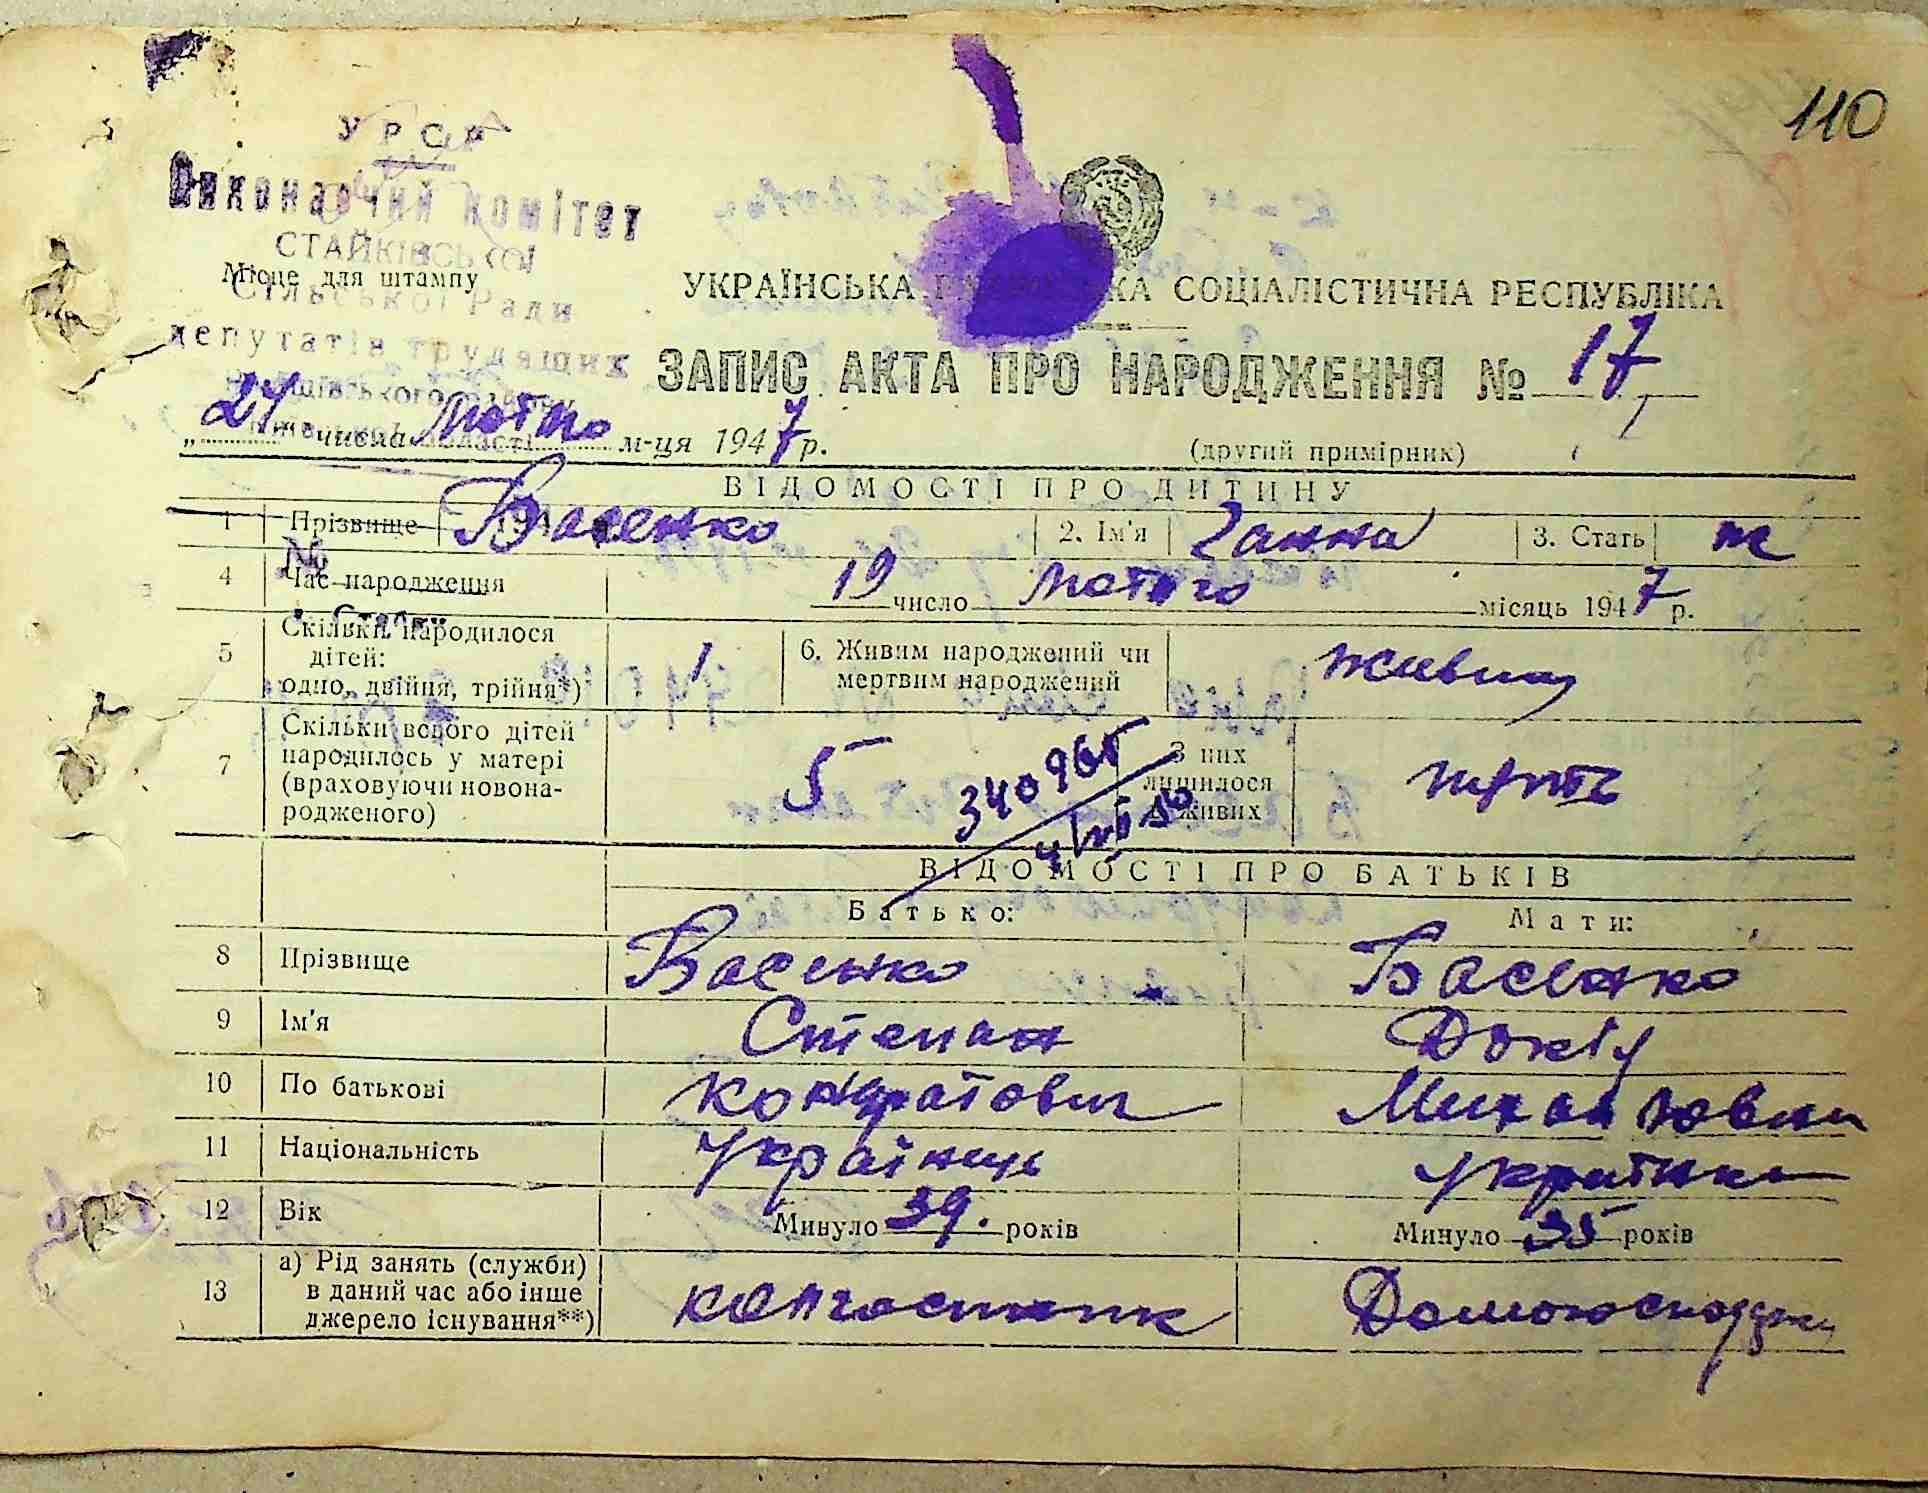 110
УРСР
Виконавчий комітет
СТАЙКІВСЬКОЇ
Місце для штампу
Сільської Ради
депутатів трудящих
УКРАЇНСЬКА РАДЯНСЬКА СОЦІАЛІСТИЧНА РЕСПУБЛІКА
ЗАПИС АКТА ПРО НАРОДЖЕННЯ № 17
„24" числа Лютого м-ця 1947 р.
(другий примірник)
ВІДОМОСТІ ПРО ДИТИНУ
1 Прізвище Васенко 2. Ім'я Ганна 3. Стать ж
№
4 Час народження 19 число Лютого місяць 1947 р.
5 Скільки народилося дітей: одно, двійня, трійня*) 1 6. Живим народжений чи мертвим народжений живим
7 Скільки всього дітей народилось у матері (враховуючи новонародженого) 5 З них лишилося живих
340965
ВІДОМОСТІ ПРО БАТЬКІВ
Батько: Мати:
8 Прізвище Васенко Васенко
9 Ім'я Степан Докія
10 По батькові Кондратович
11 Національність Українець українка
12 Вік Минуло 39. років Минуло 35 років
13 а) Рід занять (служби) в даний час або інше джерело існування**) колгоспник